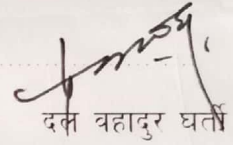 दल वहादुर घर्ती